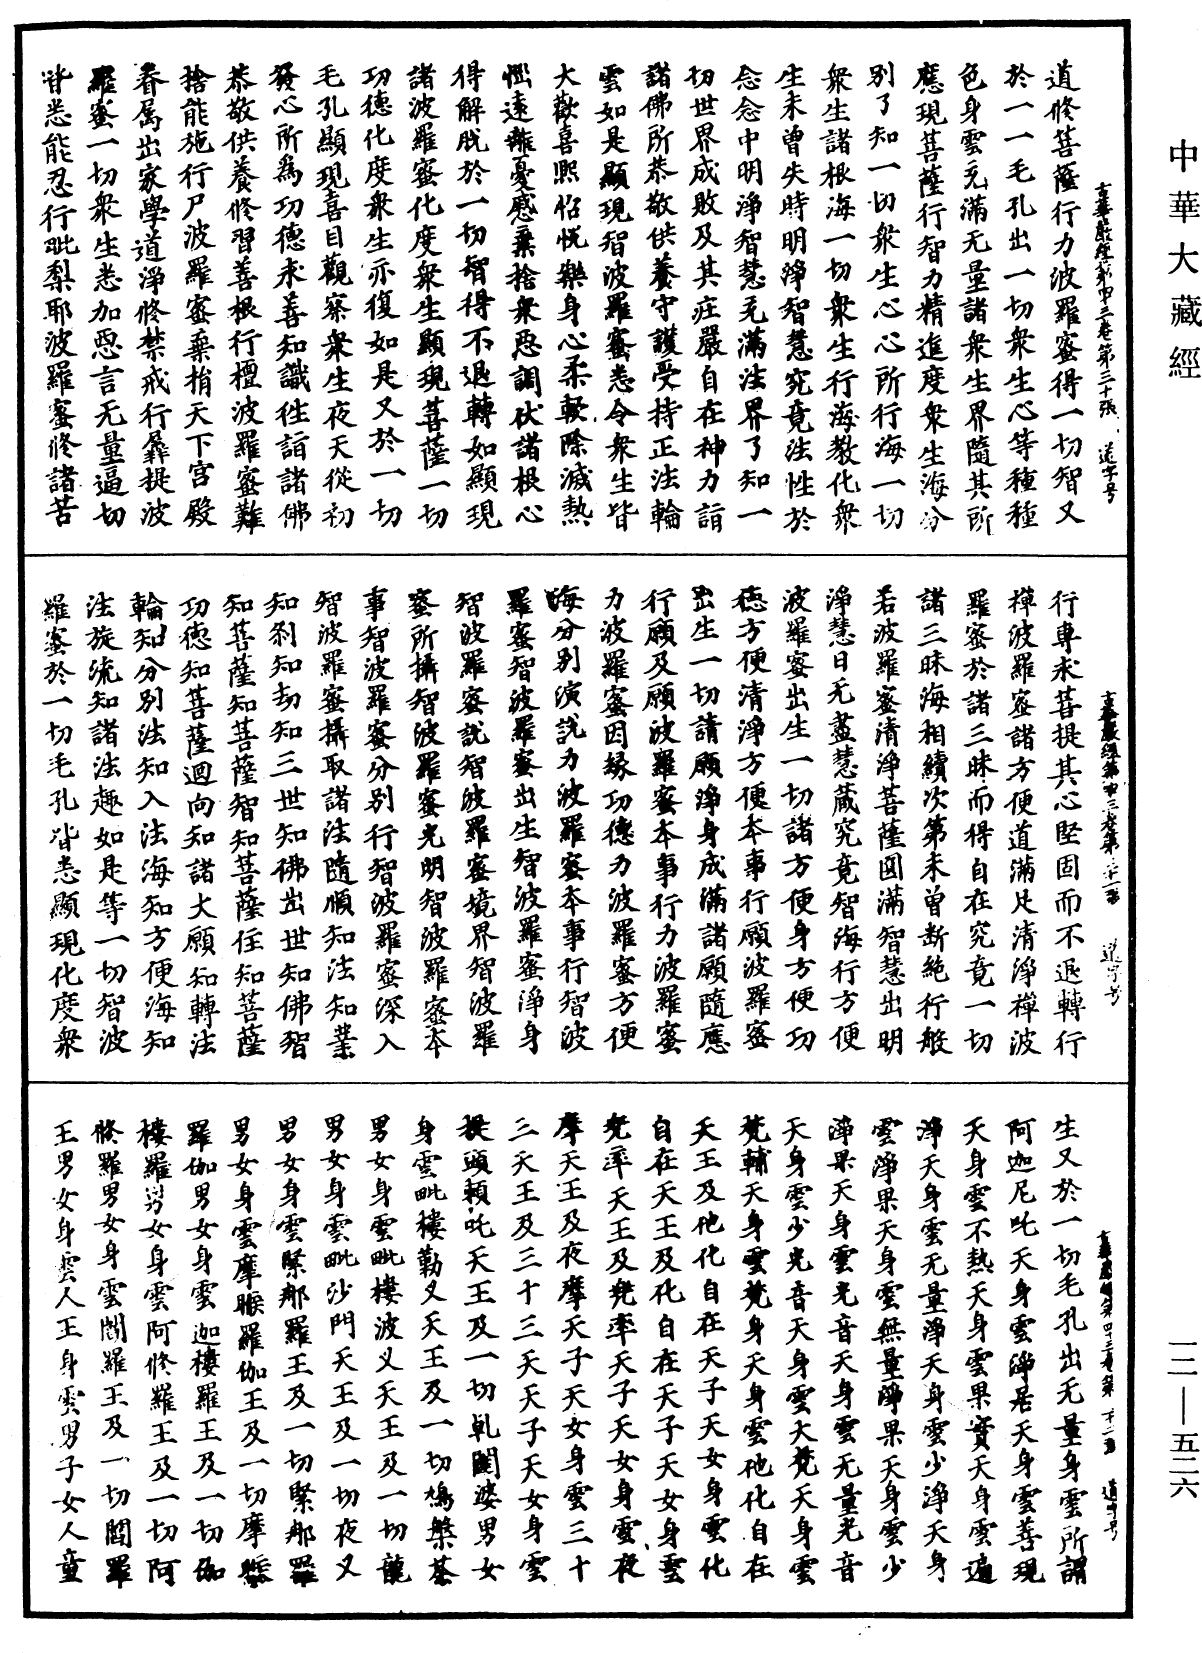 中華大藏經
道修菩薩行力波羅蜜得一切智又
於一一毛孔出一切衆生心等種種
色身雲充滿无量諸衆生界隨其所
應現菩薩行智力精進度衆生海分
別了知一切衆生心心所行海一切
衆生諸根海一切衆生行海教化衆
生未曾失時明淨智慧究竟法性於
念念中明淨智慧充滿法界了知一
切世界成敗及其莊嚴自在神力詣
諸佛所恭敬供養守護受持正法輪
雲如是顯現智波羅蜜悉令衆生皆
大歡喜熙怡悅樂身心柔軟除滅熱
惱遠離憂慼棄捨衆惡調伏諸根心
得解脫於一切智得不退轉如顯現
諸波羅蜜化度衆生顯現菩薩一切
功德化度衆生亦復如是又於一切
毛孔顯現喜目觀察衆生夜天從初
發心所爲功德求善知識徃詣諸佛
恭敬供養修習善根行檀波羅蜜難
捨能施行尸波羅蜜棄捐天下宮殿
眷屬出家學道淨修禁戒行羼提波
羅蜜一切衆生悉加惡言无量逼切
皆悉能忍行毗梨耶波羅蜜修諸苦
行專求菩提其心堅固而不退轉行
禪波羅蜜諸方便道滿足清淨禪波
羅蜜於諸三昧而得自在究竟一切
諸三昧海相續次第未曾斷絕行般
若波羅蜜清淨菩薩圓滿智慧出明
淨慧日无盡慧藏究竟智海行方便
波羅蜜出生一切諸方便身方便功
德方便清淨方便本事行願波羅蜜
出生一切請願淨身成滿諸願隨應
行願及願波羅蜜本事行力波羅蜜
力波羅蜜因緣功德力波羅蜜方便
海分別演說力波羅蜜本事行智波
羅蜜智波羅蜜出生智波羅蜜淨身
智波羅蜜說智波羅蜜境界智波羅
蜜所攝智波羅蜜光明智波羅蜜本
事智波羅蜜分別行智波羅蜜深入
智波羅蜜攝取諸法隨順知法知業
知刹知劫知三世知佛出世知佛智
知菩薩知菩薩智知菩薩住知菩薩
功德知菩薩迴向知諸大願知轉法
輪知分別法知入法海知方便海知
法旋流知諸法趣如是等一切智波
羅蜜於一切毛孔皆悉顯現化度衆
生又於一切毛孔出无量身雲所謂
阿迦尼吒天身雲淨居天身雲善現
天身雲不熱天身雲果實天身雲遍
淨天身雲无量淨天身雲少淨天身
雲淨果天身雲無量淨果天身雲少
淨果天身雲光音天身雲无量光音
天身雲少光音天身雲大梵天身雲
梵輔天身雲梵身天身雲他化自在
天王及他化自在天子天女身雲化
自在天王及化自在天子天女身雲
兜率天王及兜率天子天女身雲夜
摩天王及夜摩天子天女身雲三十
三天王及三十三天天子天女身雲
提頭賴吒天王及一切乹闥婆男女
身雲毗樓勒叉天王及一切鳩槃茶
男女身雲毗樓波叉天王及一切龍
男女身雲毗沙門天王及一切夜叉
男女身雲緊那羅王及一切緊那羅
男女身雲摩睺羅伽王及一切摩睺
羅伽男女身雲迦樓羅王及一切伽
樓羅男女身雲阿修羅王及一切阿
修羅男女身雲閻羅王及一切閻羅
王男女身雲人王身雲男子女人童
一二—五二六